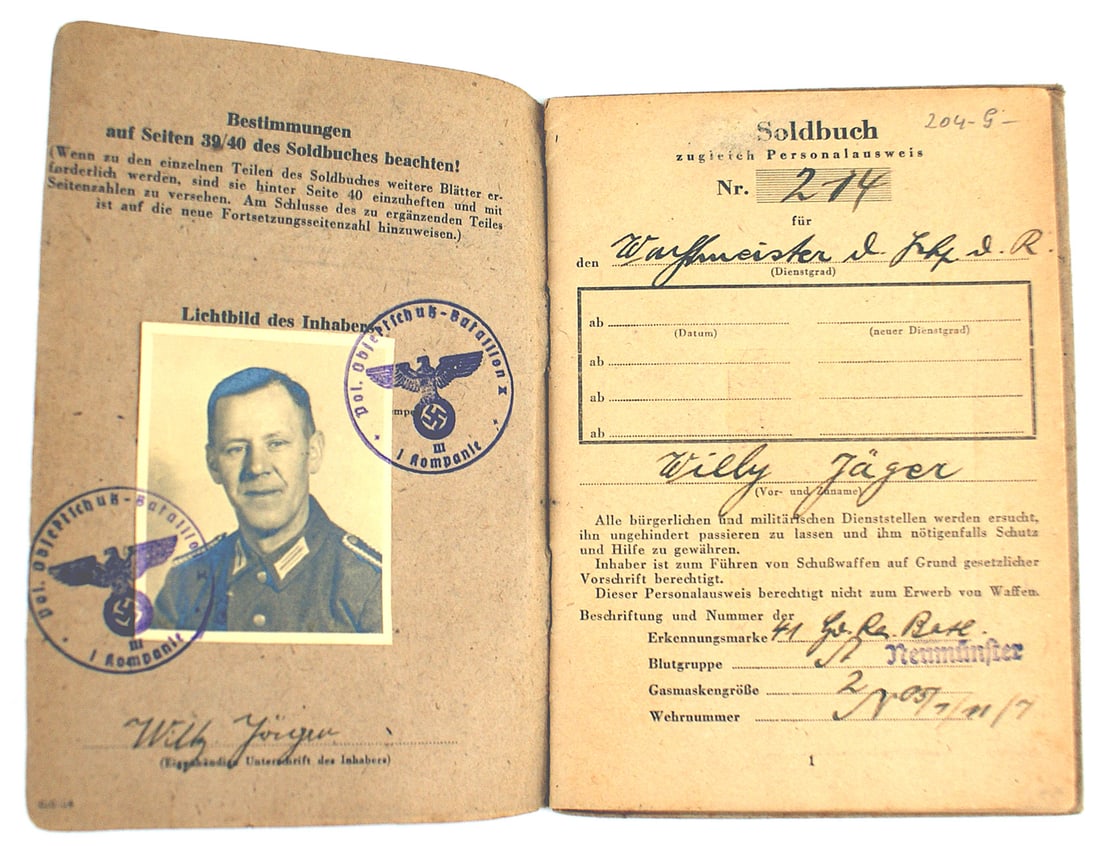 Bestimmungen
auf Seiten 39/40 des Soldbuches beachten!
(Wenn zu den einzelnen Teilen des Soldbuches weitere Blätter er-
forderlich werden, sind sie hinter Seite 40 einzuheften und mit
Seitenzahlen zu versehen. Am Schlusse des zu ergänzenden Teiles
ist auf die neue Fortsetzungsseitenzahl hinzuweisen.)
Lichtbild des Inhabers
Pol. Objektschutz-Bataillon X
III
1 Kompanie
Pol. Objektschutz-Bataillon
III
1 Kompanie
Willy
(Eigenhändige Unterschrift des Inhabers)
204-G-
Soldbuch
zugleich Personalausweis
Nr. 214
für
den Wachtmeister d. d. R.
(Dienstgrad)
ab
(Datum) (neuer Dienstgrad)
ab
ab
ab
Willy Jäger
(Vor- und Zuname)
Alle bürgerlichen und militärischen Dienststellen werden ersucht,
ihn ungehindert passieren zu lassen und ihm nötigenfalls Schutz
und Hilfe zu gewähren.
Inhaber ist zum Führen von Schußwaffen auf Grund gesetzlicher
Vorschrift berechtigt.
Dieser Personalausweis berechtigt nicht zum Erwerb von Waffen.
Beschriftung und Nummer der
Erkennungsmarke 41
Neumünster
Blutgruppe A
Gasmaskengröße 2
Wehrnummer
1